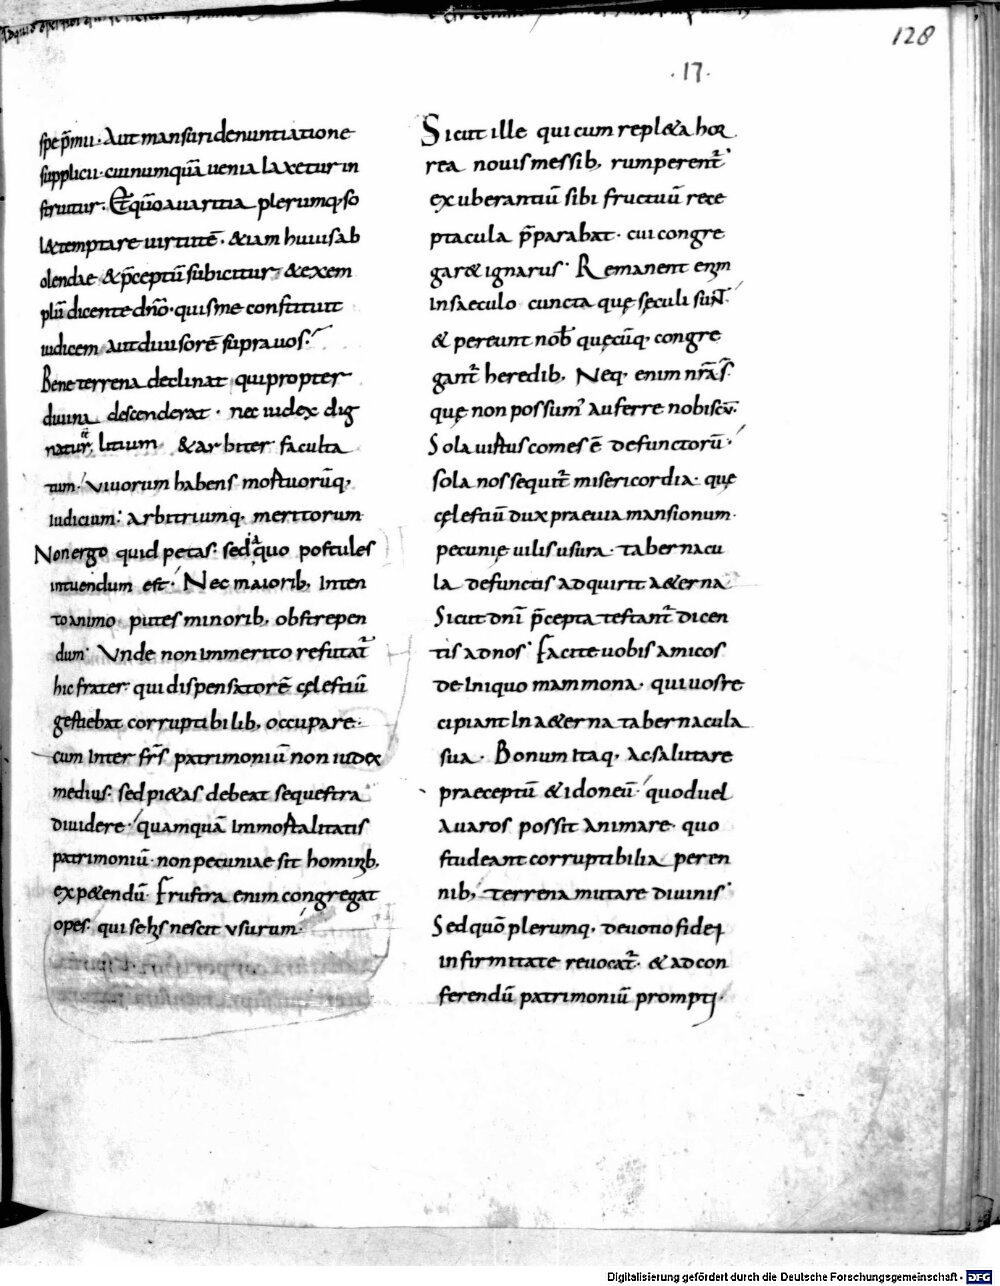 128
.17.
spe p̄miı. Aut mansuri denuntiatione
supplicii. cui numquā uenia laxetur in
struitur. Et quō auaritia plerumq; so
let temptare uirtutē. etiam huius ab
olendae et p̄ceptū subicitur, et exem
plū dicente dn̄o. quis me constituit
iudicem aut diuisorē supra uos.
Bene terrena declinat qui propter
diuina descenderat. nec iudex dig
natur litium et arbiter faculta
tum. Viuorum habens mortuorūq;
iudicium. arbitriumq; meritorum
Non ergo quid petas. sed a quo postules
intuendum est. Nec maiorib; inten
to animo putes minorib; obstrepen
dum. Vnde non immerito refutat̄
hic frater. qui dispensatorē cęlestiū
gestiebat corruptibilib; occupare.
cum inter fr̄s patrimoniū non iudex
medius. sed pietas debeat sequestra
diuidere. quamquā immortalitatis
patrimoniū. non pecuniae sit hominib;
expetendū. Frustra enim congregat
opes. qui se his nescit usurum.
Sicut ille qui cum repleta hor
rea nouis messib; rumperent̄
exuberantiū sibi fructuū rece
ptacula p̄parabat. cui congre
garet ignarus. Remanent enim
in saeculo cuncta quę sęculi sunt.
et pereunt nob̄ quęcūq; congre
gant̄ heredib; Neq; enim nr̄a s̄.
quę non possum' auferre nobiscū.
Sola uirtus comes ē defunctorū.
sola nos sequit̄ misericordia. quę
cęlestiū dux praeuia mansionum.
pecunię uilis usura. tabernacu
la defunctis adquirit aeterna
Sicut dn̄i p̄cepta testant̄ dicen
tis ad nos. Facite uobis amicos
de iniquo mammona. qui uos re
cipiant in aeterna tabernacula
sua. Bonum itaq; ac salutare
praeceptū et idoneū. quod uel
auaros possit animare. quo
studeant corruptibilia peren
nib; terrena mutare diuinis.
Sed quō plerumq; deuotio fidei
infirmitate reuocat̄. et ad con
ferendū patrimoniū prompti.
Digitalisierung gefördert durch die Deutsche Forschungsgemeinschaft - DFG